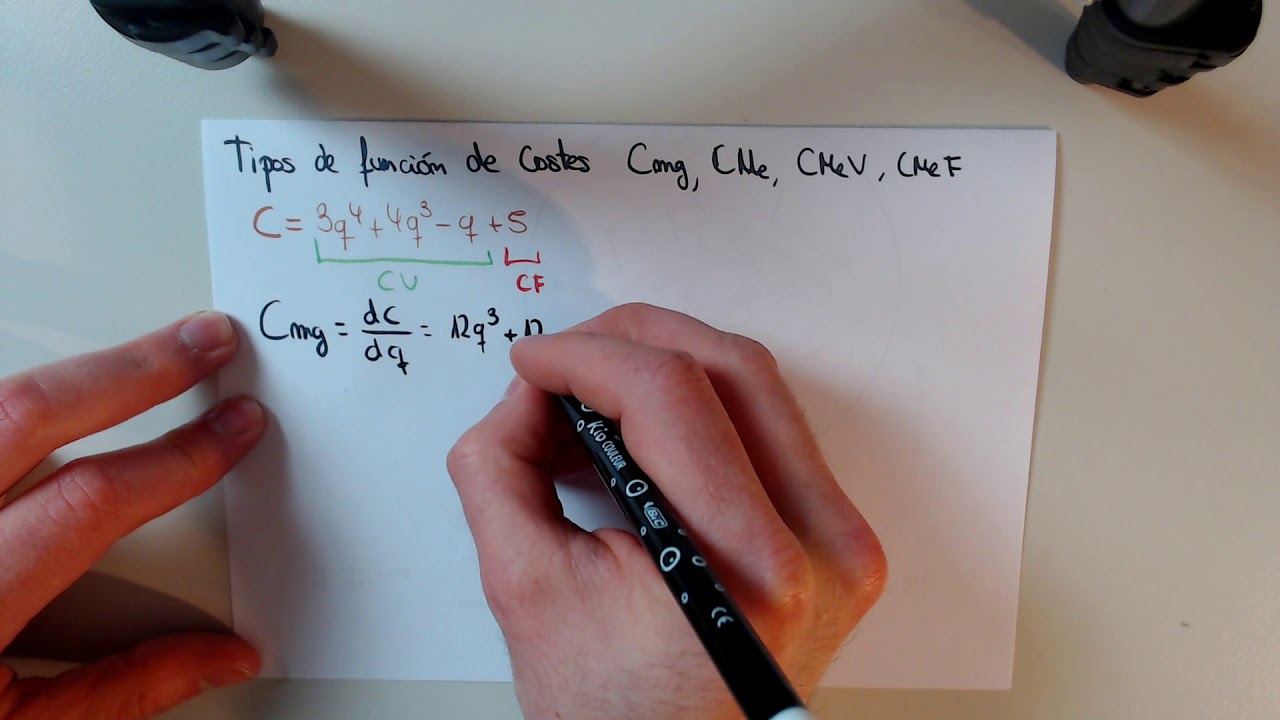 Tipos de función de Costes Cmg, CMe, CMeV, CMeF
C = 3q⁴ + 4q³ - q + 5
CV CF
Cmg = dC/dq = 12q³ + 12
KID COULEUR
BIC
CE